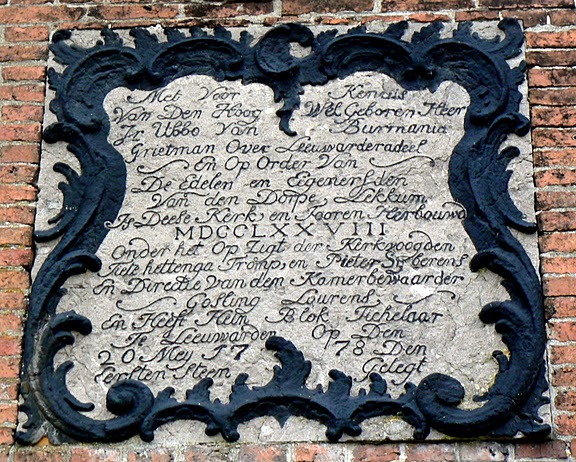 Met Voor Kennis
Van Den Hoog Wel Geboren Heer
Jr Ubbo Van Burmania
Grietman Over Leeuwarderadeel
En Op Order Van
De Edelen en Eigenersden
Van den Dorpe Lekkum
Is Deese Kerk en Tooren Herbouwd
MDCCLXXVIII
Onder het Op Zigt der Kerkvoogden
Jiete hettenga Tromp, en Pieter Sijberens
En Directie van dem Kamerbewaarder
Gosling Lourens
En Heeft Blok Tichelaar
Te Leeuwarden Op Dem
20 Mey 17 78 Den
Eersten Steen Gelegt